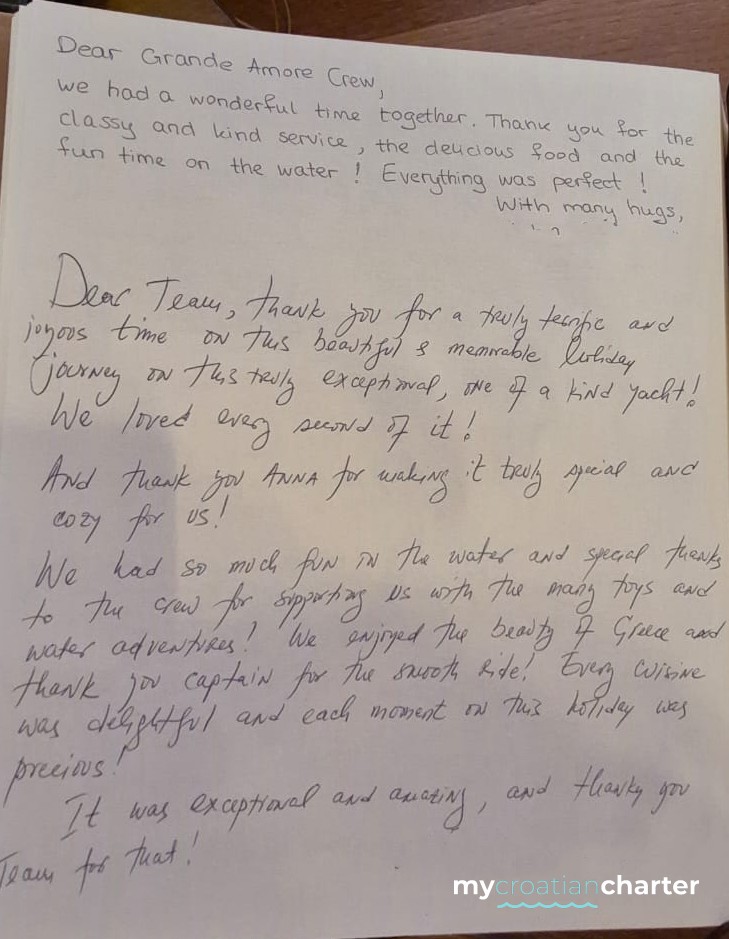 Dear Grande Amore Crew,
we had a wonderful time together. Thank you for the
classy and kind service, the delicious food and the
fun time on the water! Everything was perfect!
With many hugs,
Dear Team, thank you for a truly terrific and
joyous time on this beautiful & memorable holiday
journey on this truly exceptional, one of a kind yacht!
We loved every second of it!
And thank you ANNA for making it truly special and
cozy for us!
We had so much fun in the water and special thanks
to the crew for supporting us with the many toys and
water adventures! We enjoyed the beauty of Greece and
thank you captain for the smooth ride! Every cuisine
was delightful and each moment on this holiday was
precious!
It was exceptional and amazing, and thanky you
Team for that!
mycroatiancharter